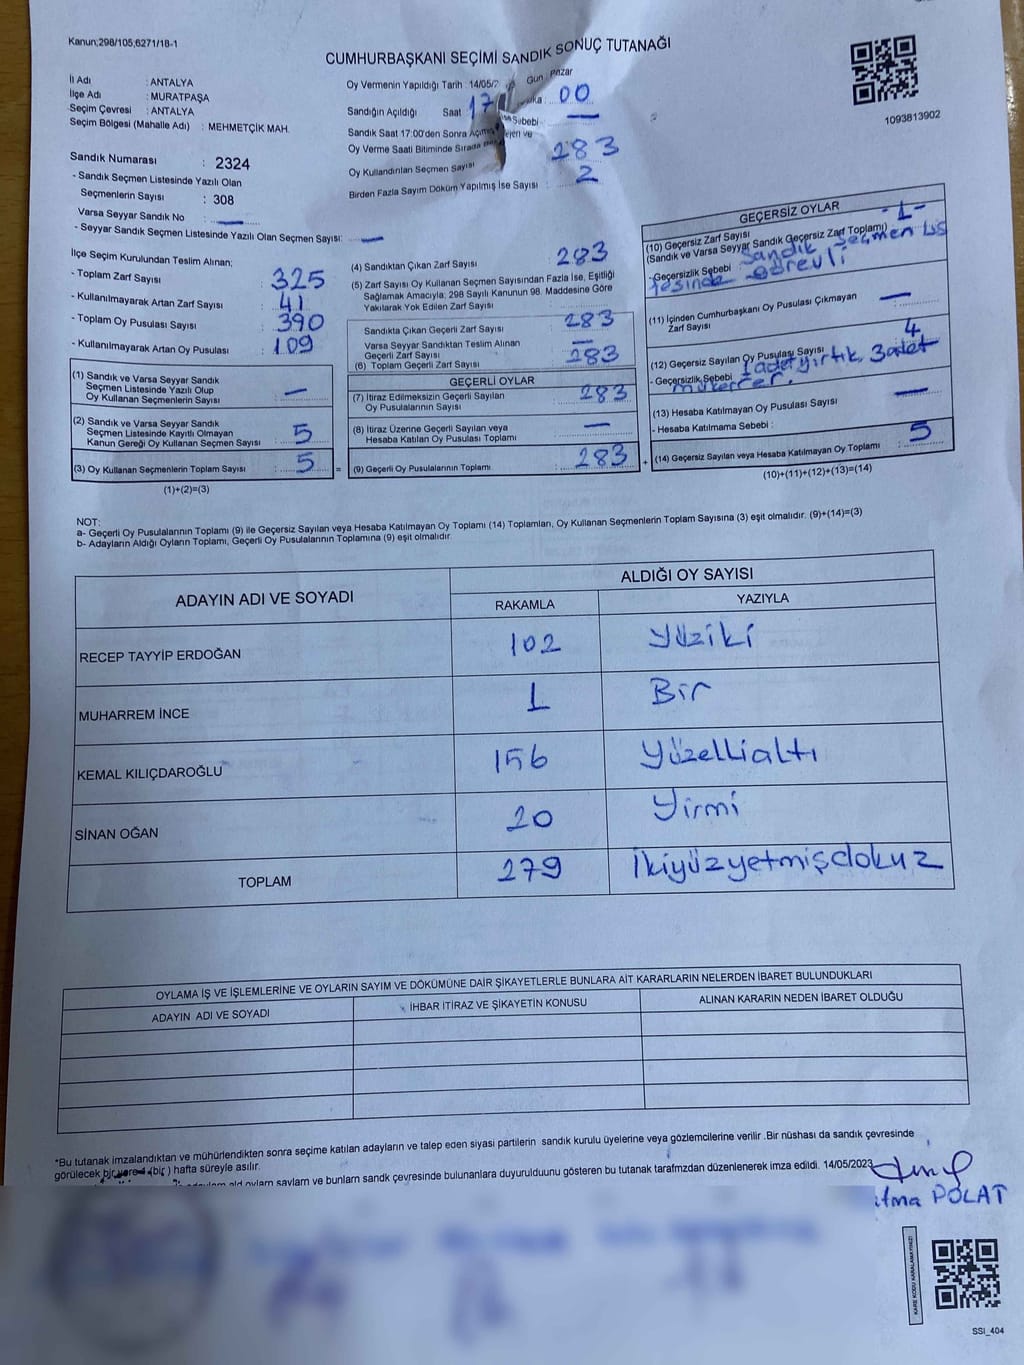 Kanun;298/105,6271/18-1
CUMHURBAŞKANI SEÇİMİ SANDIK SONUÇ TUTANAĞI
1093813902
İl Adı : ANTALYA
İlçe Adı : MURATPAŞA
Seçim Çevresi : ANTALYA
Seçim Bölgesi (Mahalle Adı) : MEHMETÇİK MAH.
Sandık Numarası : 2324
- Sandık Seçmen Listesinde Yazılı Olan
Seçmenlerin Sayısı : 308
Varsa Seyyar Sandık No : —
- Seyyar Sandık Seçmen Listesinde Yazılı Olan Seçmen Sayısı: —
Oy Vermenin Yapıldığı Tarih : 14/05/2 Gun Pazar
Sandığın Açıldığı Saat 17 00
Sebebi —
Sandık Saat 17:00'den Sonra
Oy Verme Saati Bitiminde Sırada
Oy Kullandırılan Seçmen Sayısı 283
Birden Fazla Sayım Döküm Yapılmış İse Sayısı : 2
İlçe Seçim Kurulundan Teslim Alınan;
- Toplam Zarf Sayısı : 325
- Kullanılmayarak Artan Zarf Sayısı : 41
- Toplam Oy Pusulası Sayısı : 390
- Kullanılmayarak Artan Oy Pusulası : 109
(1) Sandık ve Varsa Seyyar Sandık
Seçmen Listesinde Yazılı Olup
Oy Kullanan Seçmenlerin Sayısı : —
(2) Sandık ve Varsa Seyyar Sandık
Seçmen Listesinde Kayıtlı Olmayan
Kanun Gereği Oy Kullanan Seçmen Sayısı : 5
(3) Oy Kullanan Seçmenlerin Toplam Sayısı : 5 =
(1)+(2)=(3)
(4) Sandıktan Çıkan Zarf Sayısı : 283
(5) Zarf Sayısı Oy Kullanan Seçmen Sayısından Fazla İse, Eşitliği
Sağlamak Amacıyla; 298 Sayılı Kanunun 98. Maddesine Göre
Yakılarak Yok Edilen Zarf Sayısı :
Sandıkta Çıkan Geçerli Zarf Sayısı : 283
Varsa Seyyar Sandıktan Teslim Alınan
Geçerli Zarf Sayısı : —
(6) Toplam Geçerli Zarf Sayısı : 283
GEÇERLİ OYLAR
(7) İtiraz Edilmeksizin Geçerli Sayılan
Oy Pusulalarının Sayısı : 283
(8) İtiraz Üzerine Geçerli Sayılan veya
Hesaba Katılan Oy Pusulası Toplamı : —
(9) Geçerli Oy Pusulalarının Toplamı : 283 +
GEÇERSİZ OYLAR
(10) Geçersiz Zarf Sayısı
(Sandık ve Varsa Seyyar Sandık Geçersiz Zarf Toplamı) -1-
-Geçersizlik Sebebi : Sandık Seçmen Lis
tesinde görevli
(11) İçinden Cumhurbaşkanı Oy Pusulası Çıkmayan
Zarf Sayısı : —
(12) Geçersiz Sayılan Oy Pusulası Sayısı : 4
- Geçersizlik Sebebi : 1 adet yırtık 3 adet
mükerrer.
(13) Hesaba Katılmayan Oy Pusulası Sayısı : —
- Hesaba Katılmama Sebebi :
(14) Geçersiz Sayılan veya Hesaba Katılmayan Oy Toplamı : 5
(10)+(11)+(12)+(13)=(14)
NOT:
a- Geçerli Oy Pusulalarının Toplamı (9) ile Geçersiz Sayılan veya Hesaba Katılmayan Oy Toplamı (14) Toplamları, Oy Kullanan Seçmenlerin Toplam Sayısına (3) eşit olmalıdır. (9)+(14)=(3)
b- Adayların Aldığı Oyların Toplamı, Geçerli Oy Pusulalarının Toplamına (9) eşit olmalıdır.
ADAYIN ADI VE SOYADI
ALDIĞI OY SAYISI
RAKAMLA YAZIYLA
RECEP TAYYİP ERDOĞAN 102 Yüziki
MUHARREM İNCE 1 Bir
KEMAL KILIÇDAROĞLU 156 Yüzellialtı
SİNAN OĞAN 20 Yirmi
TOPLAM 279 İkiyüzyetmişdokuz
OYLAMA İŞ VE İŞLEMLERİNE VE OYLARIN SAYIM VE DÖKÜMÜNE DAİR ŞİKAYETLERLE BUNLARA AİT KARARLARIN NELERDEN İBARET BULUNDUKLARI
ADAYIN ADI VE SOYADI İHBAR İTİRAZ VE ŞİKAYETİN KONUSU ALINAN KARARIN NEDEN İBARET OLDUĞU
*Bu tutanak imzalandıktan ve mühürlendikten sonra seçime katılan adayların ve talep eden siyasi partilerin sandık kurulu üyelerine veya gözlemcilerine verilir .Bir nüshası da sandık çevresinde
görülecek bir yere 1 (bir ) hafta süreyle asılır.
ald oyların sayların ve bunların sandk çevresinde bulunanlara duyurulduunu gösteren bu tutanak tarafmzdan düzenlenerek imza edildi. 14/05/2023
atma POLAT
KARE KODU KARALAMAYINIZ!
SSI_404